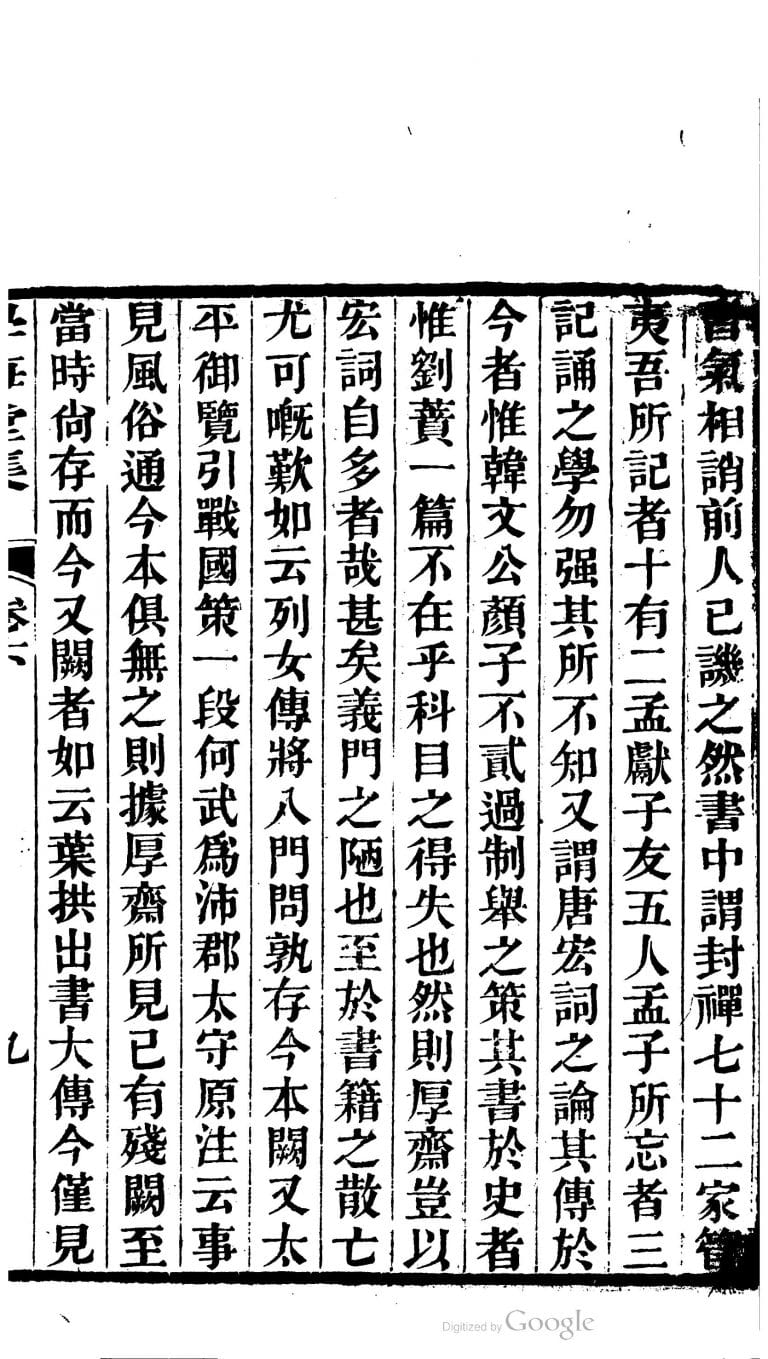 習氣相誚前人已譏之然書中謂封禪七十二家管
夷吾所記者十有二孟獻子友五人孟子所忘者三
記誦之學勿强其所不知又謂唐宏詞之論其傳於
今者惟韓文公顏子不貳過制舉之策其書於史者
惟劉蕡一篇不在乎科目之得失也然則厚齋豈以
宏詞自多者哉甚矣義門之陋也至於書籍之散亡
尤可嘅歎如云列女傳將入門問孰存今本闕又太
平御覽引戰國策一段何武爲沛郡太守原注云事
見風俗通今本俱無之則據厚齋所見已有殘闕至
當時尙存而今又闕者如云葉拱出書大傳今僅見
堂集 卷六 九
Digitized by Google